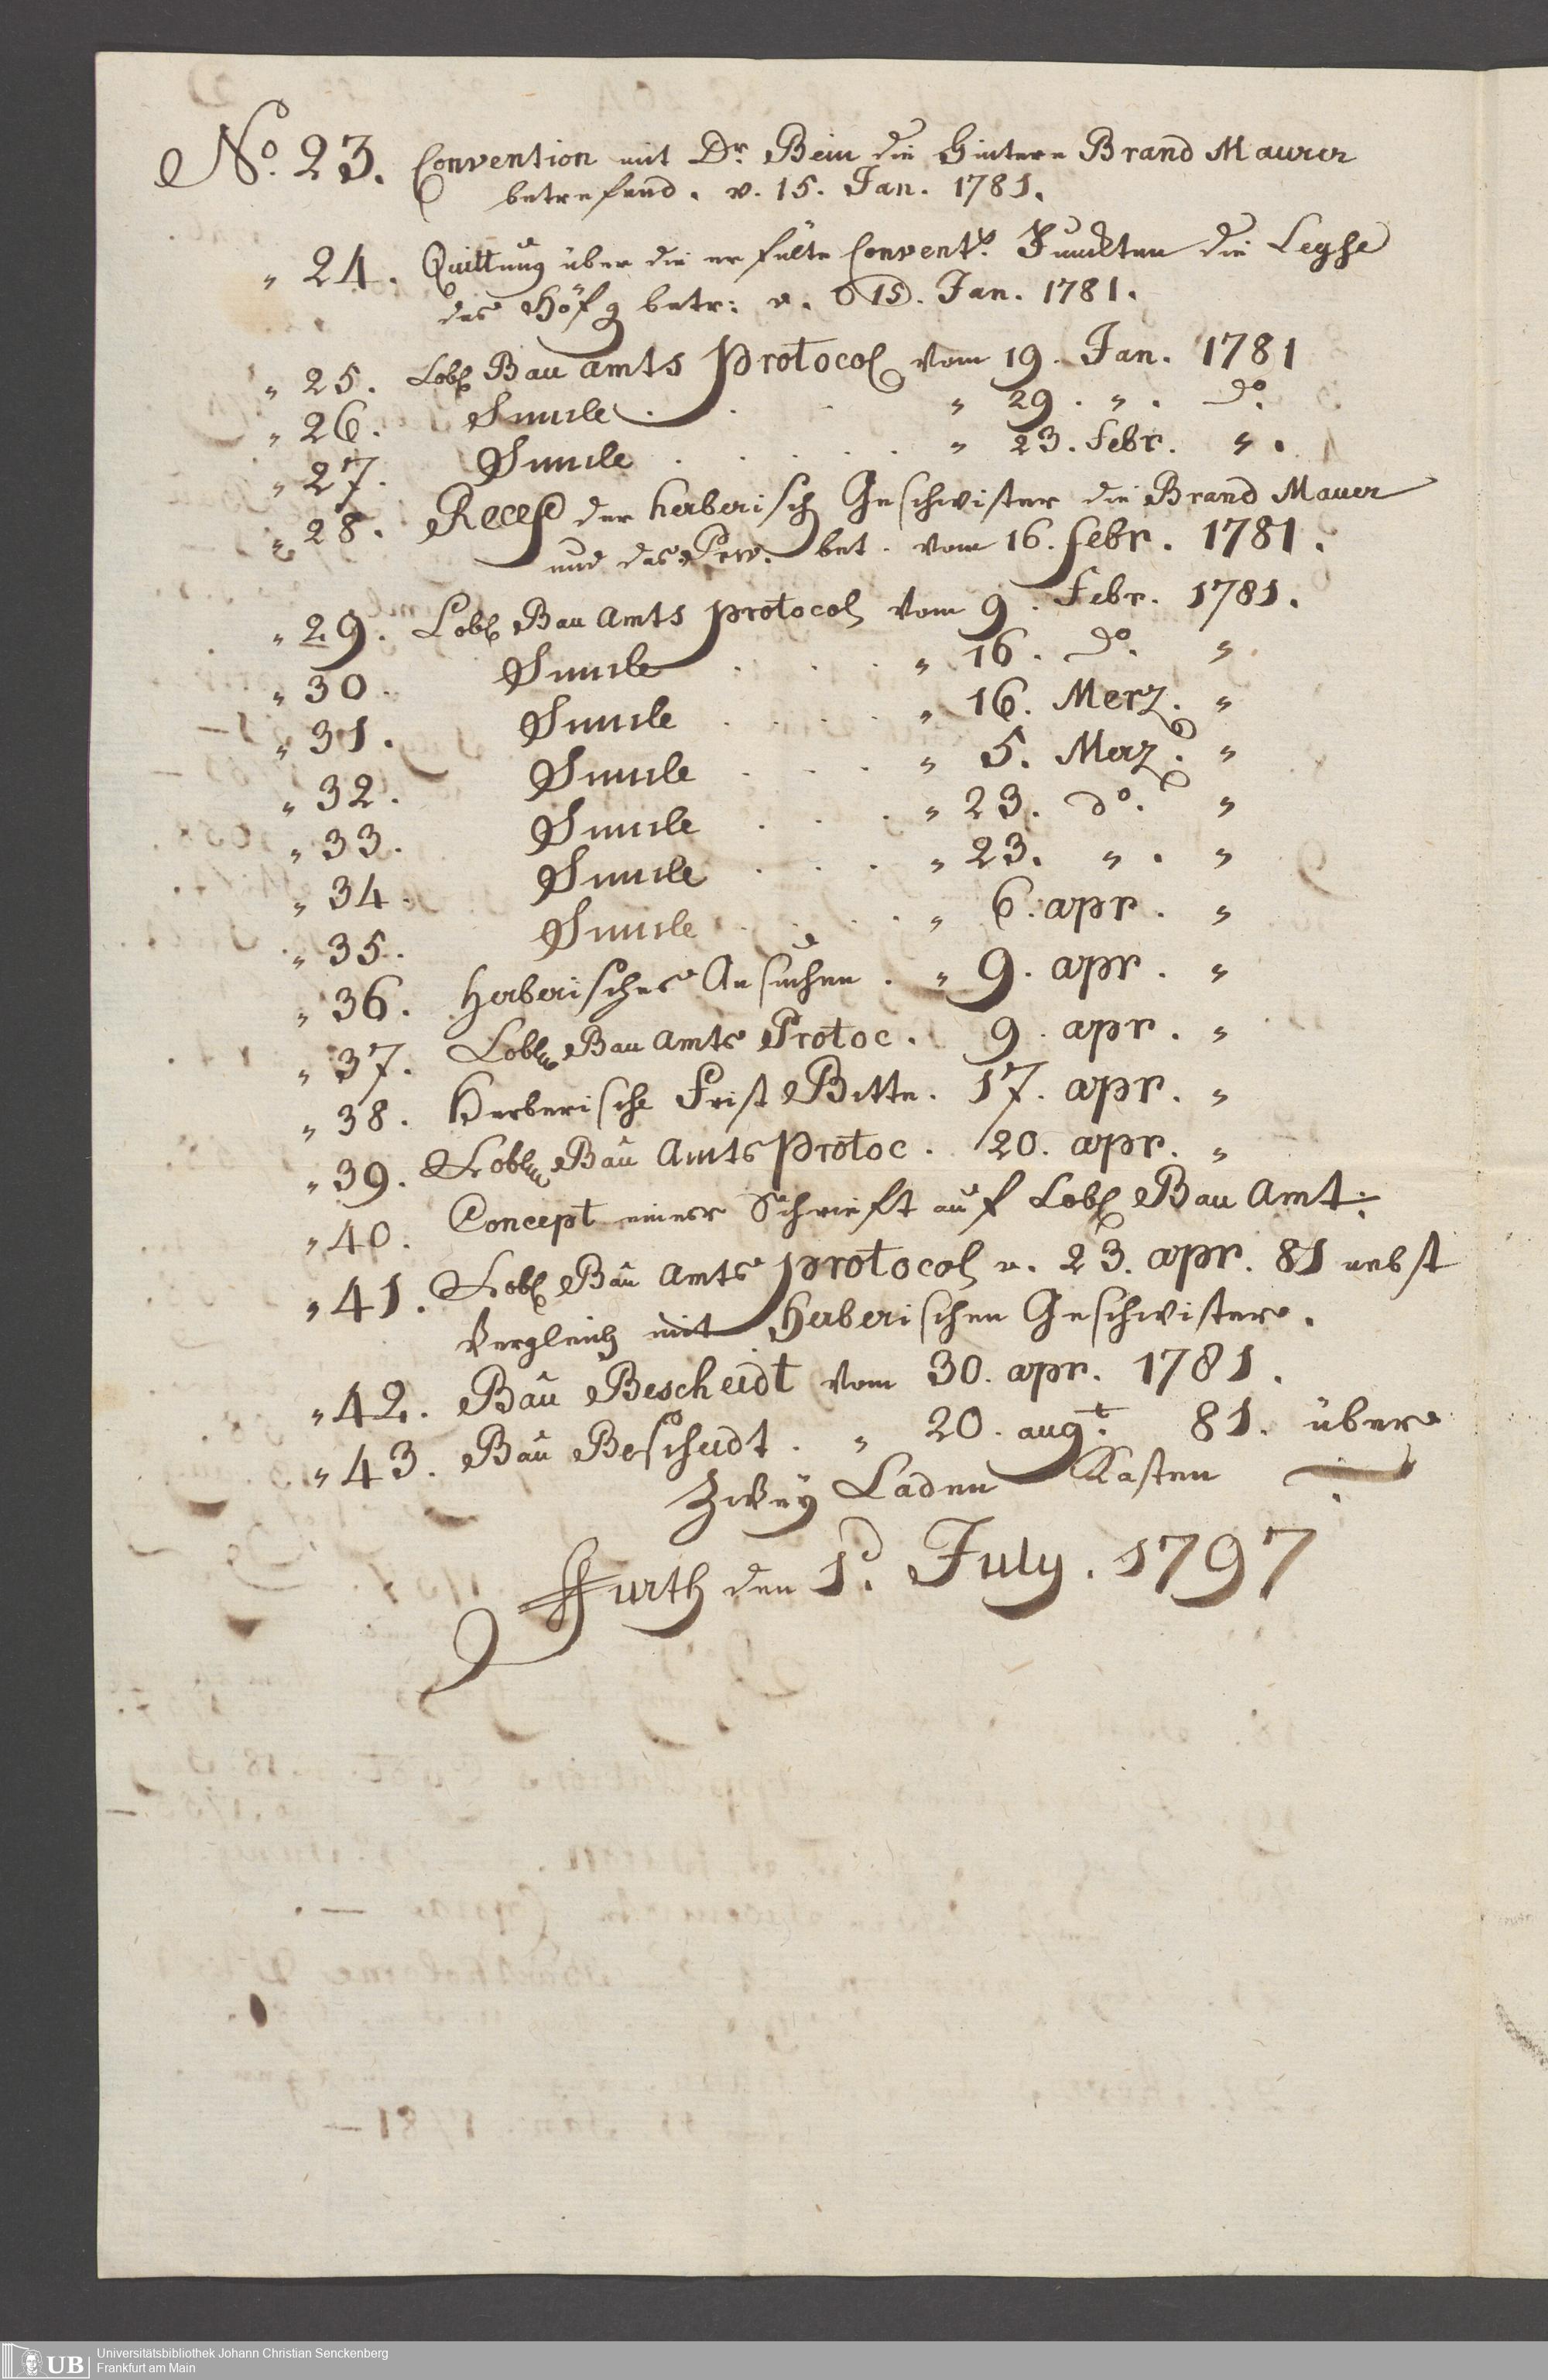 No. 23. Convention mit Dr. Bein die Hintere Brand Maurer
betrefend. v. 15. Jan. 1781.
" 24. Quittung über die erfülte Convents. Punckten die
des betr: v. 15. Jan. 1781.
" 25. Löbl Bau amts Protocol vom 19. Jan. 1781
" 26. Simile . . . " 29. ". do.
" 27. Simile . . . . . " 23. Febr. ".
" 28. Recess der Herberisch Geschwister die Brand Mauer
und das bet. vom 16. Febr. 1781.
" 29. Löbl Bau Amts protocol vom 9. Febr. 1781.
" 30. Simile . . . " 16. do. "
" 31. Simile . . . . " 16. Merz. "
" 32. Simile . . . " 5. Merz. "
" 33. Simile . . . " 23. do. "
" 34. Simile . . . " 23. ". "
" 35. Simile . . . " 6. apr. "
" 36. Herberisches Ansuchen. " 9. apr. "
" 37. Löbl Bau Amts Protoc. 9. apr. "
" 38. Herberische Frist Bitte. 17. apr. "
" 39. Löbl Bau Amts Protoc. 20. apr. "
" 40. Concept einer Schrieft auf Löbl Bau Amt.
" 41. Löbl Bau Amts protocol v. 23. apr. 81 nebst
Vergleich mit Herberischen Geschwister.
" 42. Bau Bescheidt vom 30. apr. 1781.
" 43. Bau Bescheidt. " 20. augt. 81. über
Zwey Laden Kasten
ffurth den 1. July. 1797
UB Universitätsbibliothek Johann Christian Senckenberg
Frankfurt am Main